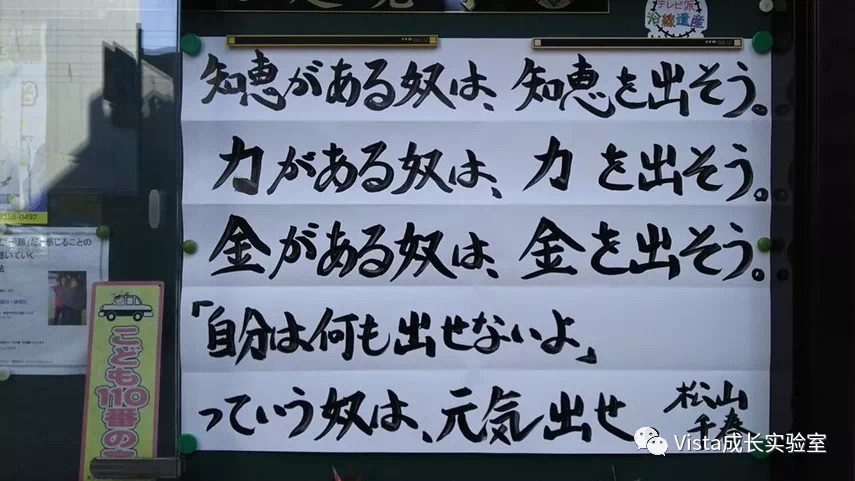 知恵がある奴は、知恵を出そう。
力がある奴は、力を出そう。
金がある奴は、金を出そう。
「自分は何も出せないよ」
っていう奴は、元気出せ
松山
千春
テレビ派
冷線遺産
358-0497
感じることの
聴いていく
法
こども110番の
Vista成长实验室